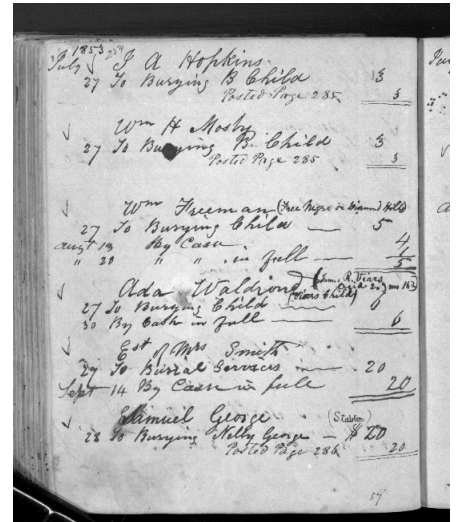 1853
July J A Hopkins
27 To Burying B Child 3
Posted Page 285 3
Wm H Mosby
27 To Burying B. Child 3
Posted Page 285 3
Wm Freeman (Free Negro on Diamond Hill)
27 To Burying Child 5
Augt 13 By Cash 4
" 20 " " in full 1
5
Ada Waldrone
(Viars Child)
27 To Burying Child 6
30 By Cash in full 6
Est of Mrs Smith
29 To Burial Services 20
Sept 14 By Cash in full 20
Samuel George (Stabler)
28 To Burying Nelly George $20
Posted Page 286 20
57